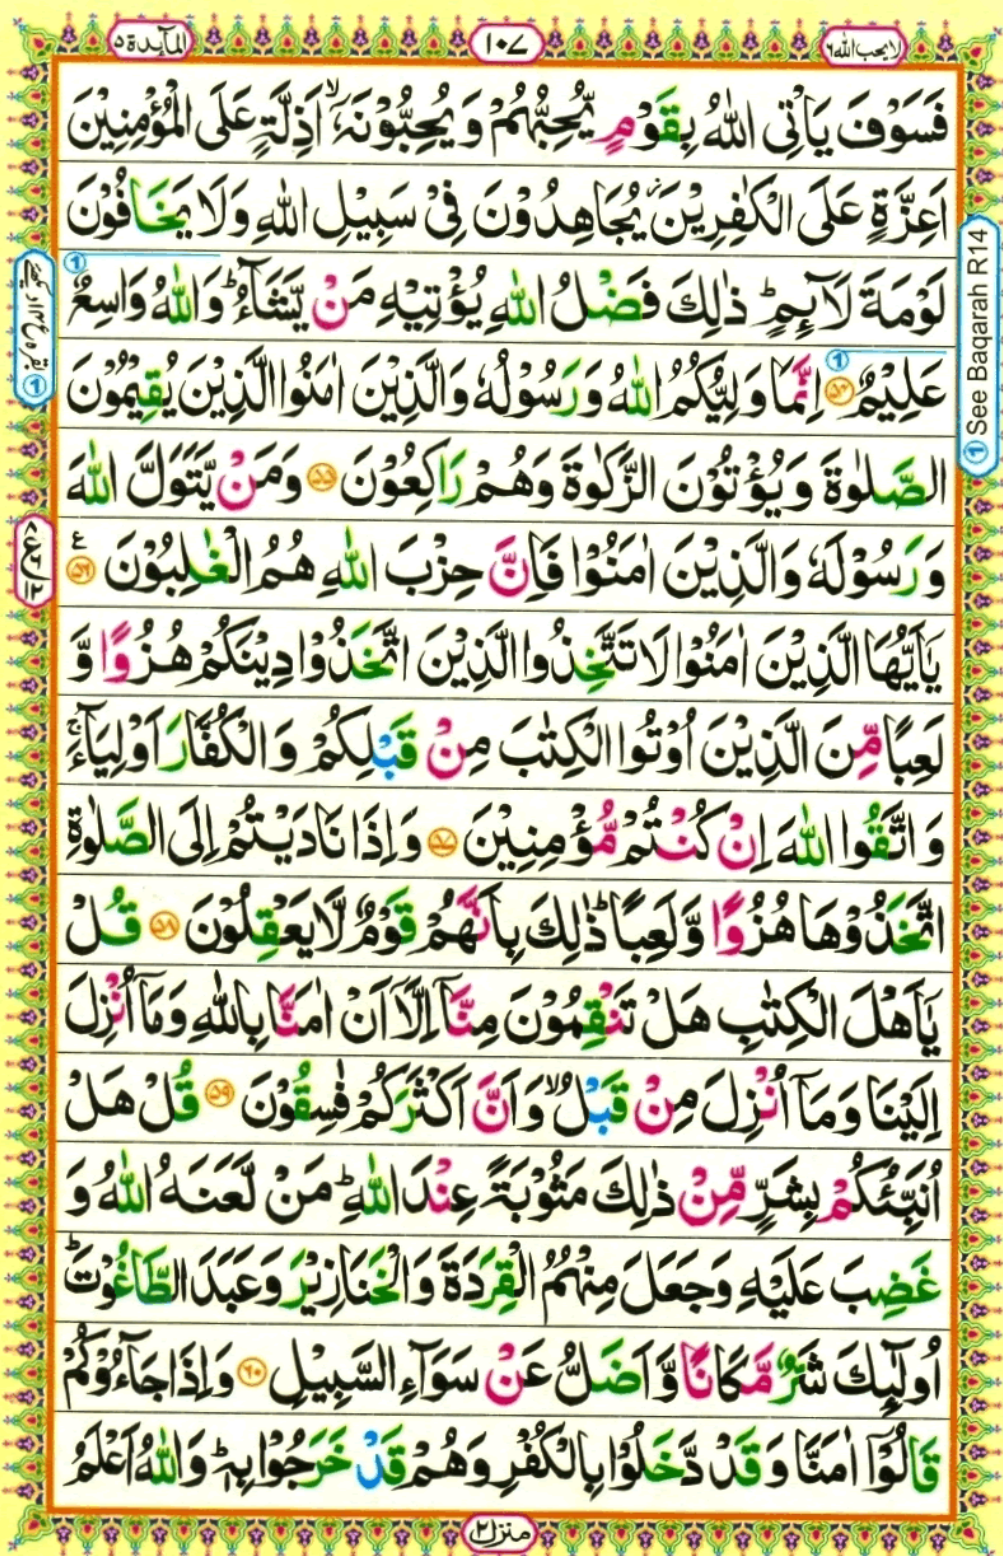 لا يحب الله ٦
١٠٧
المآئدة ٥
فَسَوْفَ يَاْتِى اللّٰهُ بِقَوْمٍ يُّحِبُّهُمْ وَيُحِبُّوْنَهٗۤ ۙ اَذِلَّةٍ عَلَى الْمُؤْمِنِيْنَ
اَعِزَّةٍ عَلَى الْكٰفِرِيْنَ ؗ يُجَاهِدُوْنَ فِىْ سَبِيْلِ اللّٰهِ وَلَا يَخَافُوْنَ
لَوْمَةَ لَآئِمٍ ؕ ذٰلِكَ فَضْلُ اللّٰهِ يُؤْتِيْهِ مَنْ يَّشَآءُ ؕ وَاللّٰهُ وَاسِعٌ ①
عَلِيْمٌ ﴿۵۴﴾ ① اِنَّمَا وَلِيُّكُمُ اللّٰهُ وَرَسُوْلُهٗ وَالَّذِيْنَ اٰمَنُوا الَّذِيْنَ يُقِيْمُوْنَ
الصَّلٰوةَ وَيُؤْتُوْنَ الزَّكٰوةَ وَهُمْ رَاكِعُوْنَ ﴿۵۵﴾ وَمَنْ يَّتَوَلَّ اللّٰهَ
وَرَسُوْلَهٗ وَالَّذِيْنَ اٰمَنُوْا فَاِنَّ حِزْبَ اللّٰهِ هُمُ الْغٰلِبُوْنَ ﴿۵۶﴾ ع
يٰۤاَيُّهَا الَّذِيْنَ اٰمَنُوْا لَا تَتَّخِذُوا الَّذِيْنَ اتَّخَذُوْا دِيْنَكُمْ هُزُوًا وَّ
لَعِبًا مِّنَ الَّذِيْنَ اُوْتُوا الْكِتٰبَ مِنْ قَبْلِكُمْ وَالْكُفَّارَ اَوْلِيَآءَ ۚ
وَاتَّقُوا اللّٰهَ اِنْ كُنْتُمْ مُّؤْمِنِيْنَ ﴿۵۷﴾ وَاِذَا نَادَيْتُمْ اِلَى الصَّلٰوةِ
اتَّخَذُوْهَا هُزُوًا وَّلَعِبًا ؕ ذٰلِكَ بِاَنَّهُمْ قَوْمٌ لَّا يَعْقِلُوْنَ ﴿۵۸﴾ قُلْ
يٰۤاَهْلَ الْكِتٰبِ هَلْ تَنْقِمُوْنَ مِنَّاۤ اِلَّاۤ اَنْ اٰمَنَّا بِاللّٰهِ وَمَاۤ اُنْزِلَ
اِلَيْنَا وَمَاۤ اُنْزِلَ مِنْ قَبْلُ ۙ وَاَنَّ اَكْثَرَكُمْ فٰسِقُوْنَ ﴿۵۹﴾ قُلْ هَلْ
اُنَبِّئُكُمْ بِشَرٍّ مِّنْ ذٰلِكَ مَثُوْبَةً عِنْدَ اللّٰهِ ؕ مَنْ لَّعَنَهُ اللّٰهُ وَ
غَضِبَ عَلَيْهِ وَجَعَلَ مِنْهُمُ الْقِرَدَةَ وَالْخَنَازِيْرَ وَعَبَدَ الطَّاغُوْتَ ؕ
اُولٰٓئِكَ شَرٌّ مَّكَانًا وَّاَضَلُّ عَنْ سَوَآءِ السَّبِيْلِ ﴿۶۰﴾ وَاِذَا جَآءُوْكُمْ
قَالُوْۤا اٰمَنَّا وَقَدْ دَّخَلُوْا بِالْكُفْرِ وَهُمْ قَدْ خَرَجُوْا بِهٖ ؕ وَاللّٰهُ اَعْلَمُ
منزل ٢
① See Baqarah R14